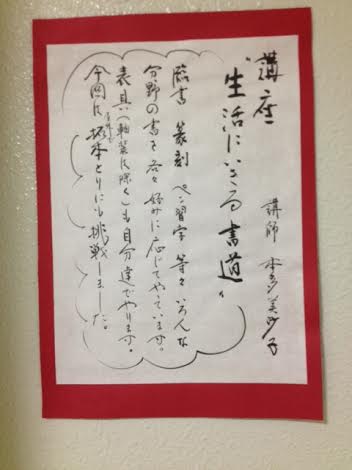 講座
“生活にいきる書道”
講師 本多美沙子
臨書 篆刻 ペン習字 等々 いろんな
分野の書を各々好みに応じてやっています。
表具(軸装は除く)も自分達でやります。
今回は拓本とりにも挑戦しました。